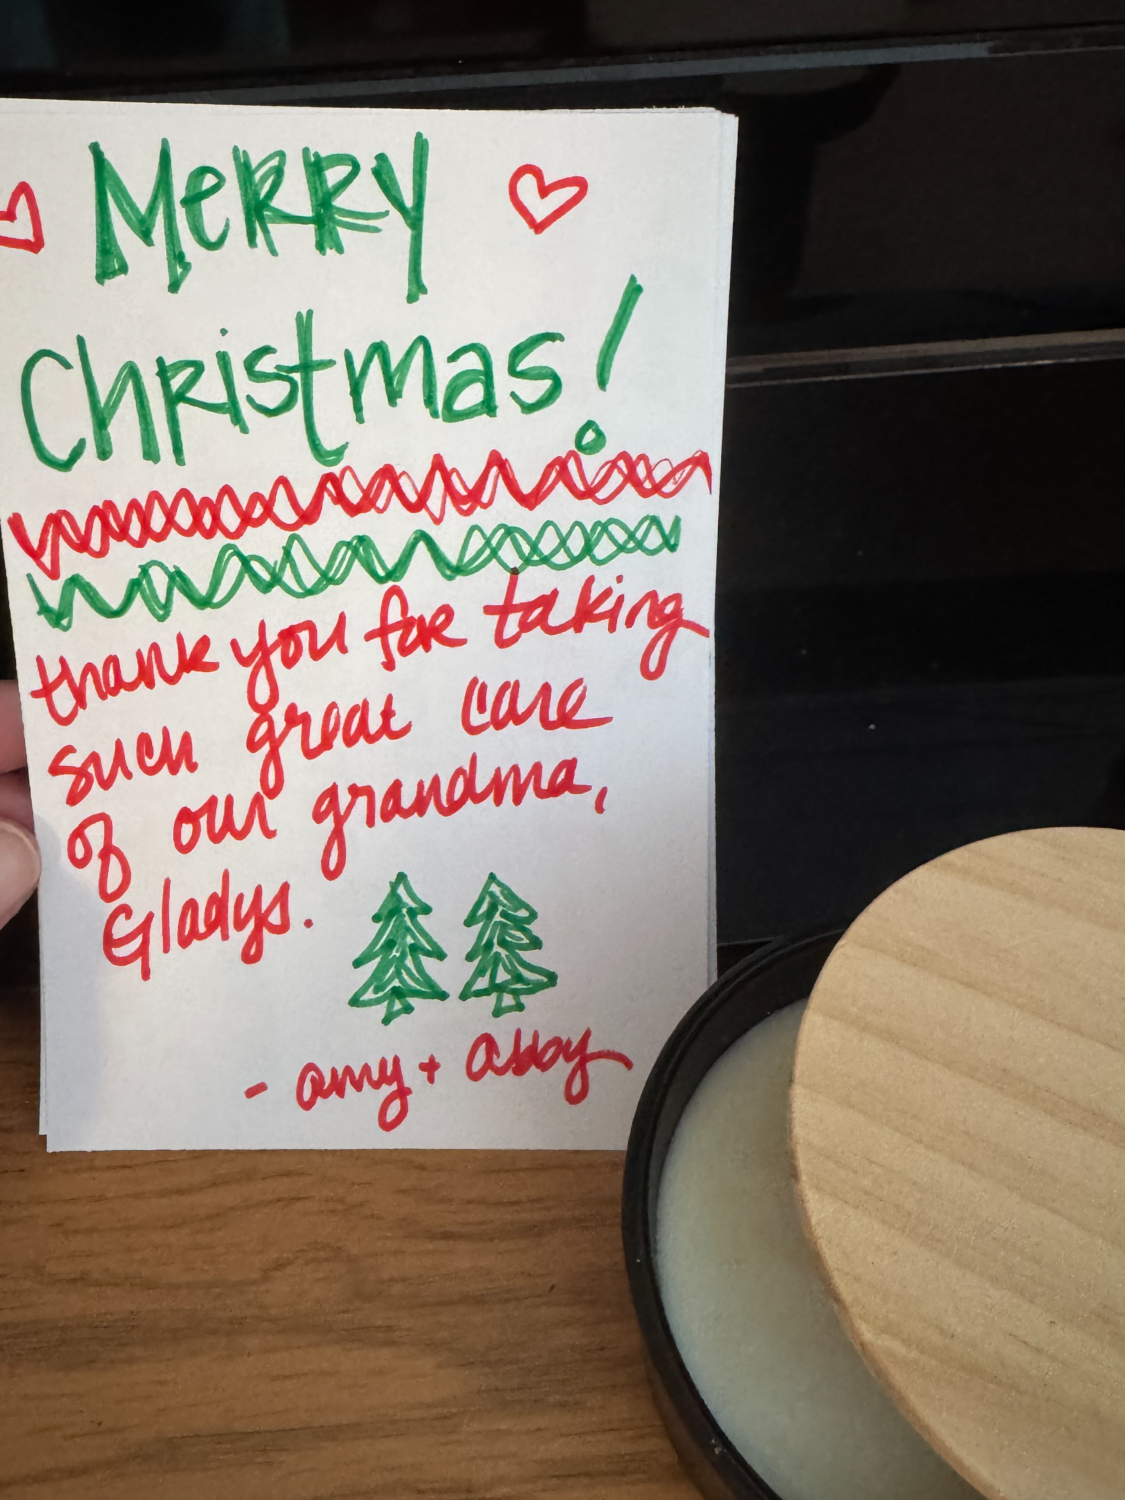 Merry
Christmas!
thank you for taking
such great care
of our grandma,
Gladys.
- amy + abby